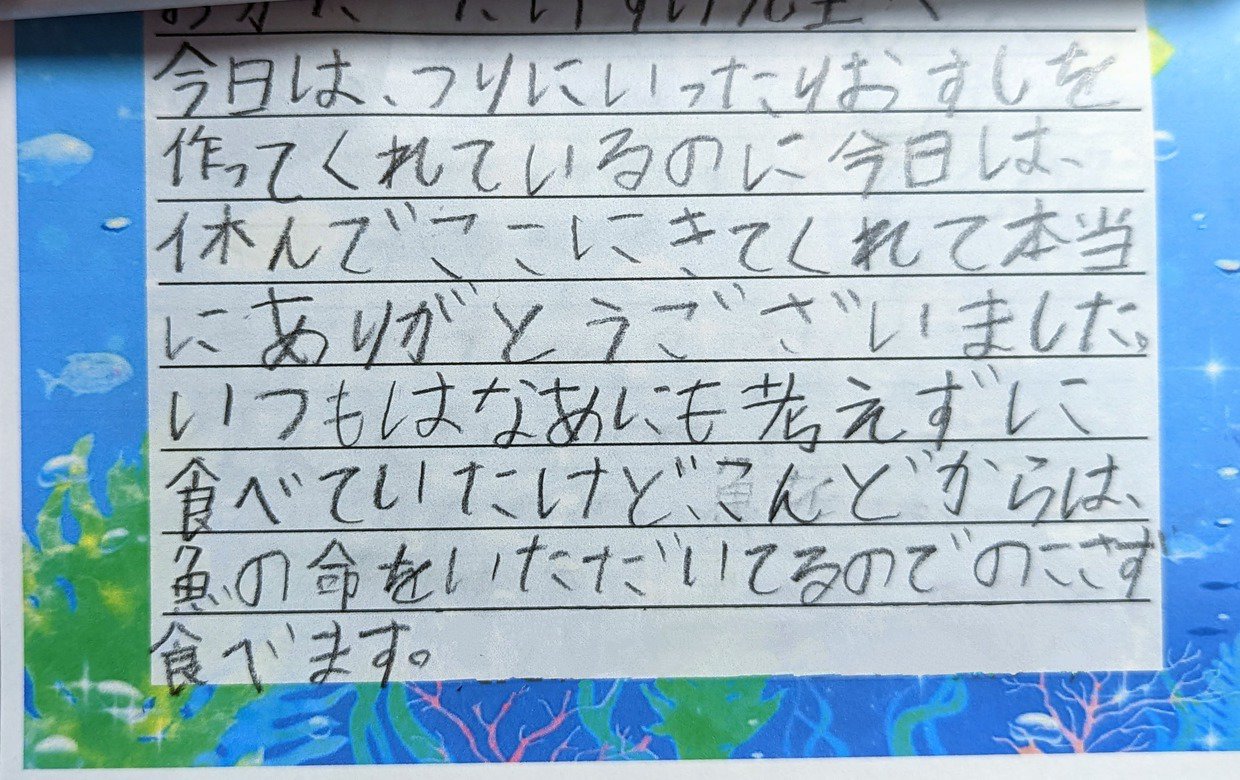 今日は、つりにいったりおすしを
作ってくれているのに今日は、
休んでここにきてくれて本当
にありがとうございました。
いつもはなあにも考えずに
食べていたけど、こんどからは、
魚の命をいただいてるのでのこさず
食べます。